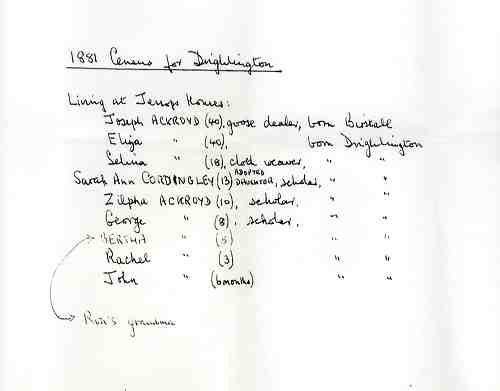 1881 Census for Drighlington
Living at Jessops Houses:
Joseph ACKROYD (40), goose dealer, born Birstall
Eliza " (40), born Drighlington
Selina " (18), cloth weaver, " "
Sarah Ann CORDINGLEY (13) ADOPTED DAUGHTER, scholar, " "
Zilpha ACKROYD (10), scholar, " "
George " (8), scholar, " "
BERTHA " (5) " "
Rachel " (3) " "
John " (6 months) " "
Ron's grandma